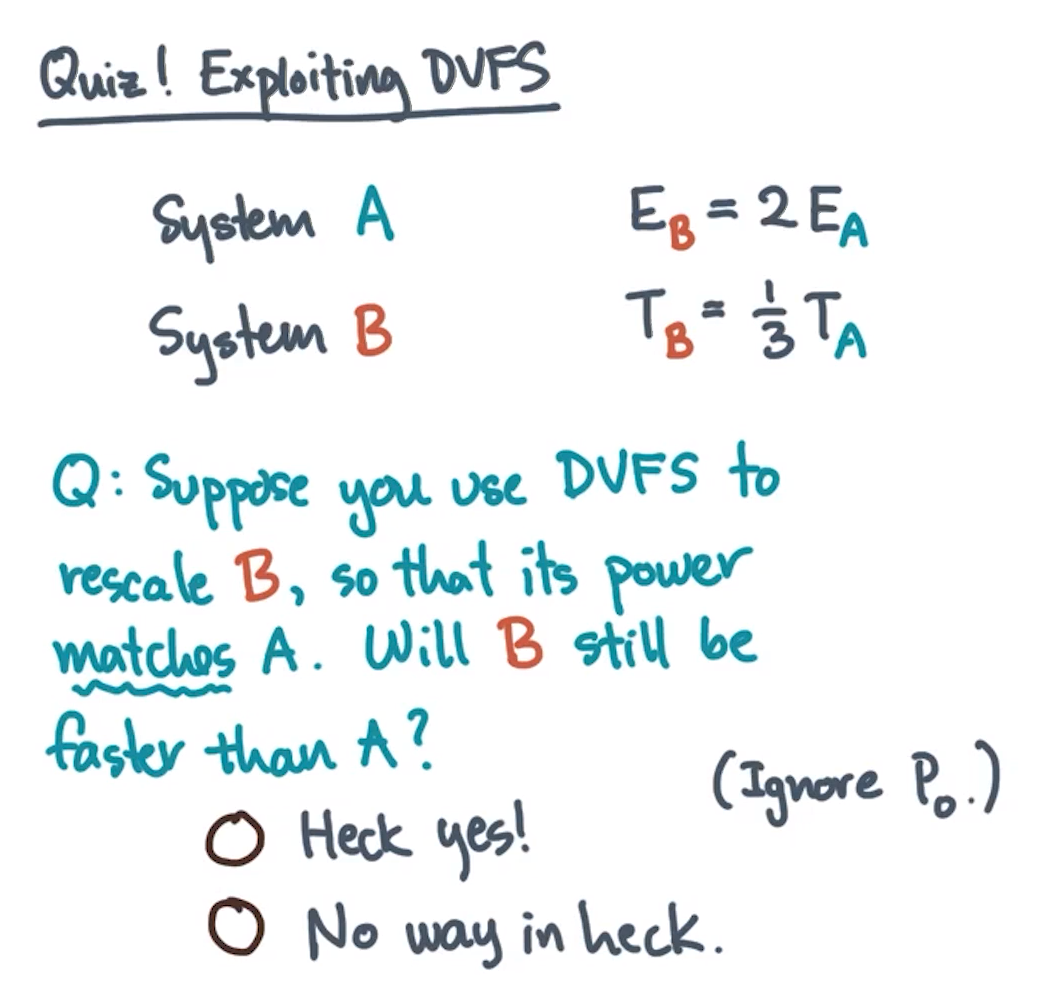 Quiz! Exploiting DVFS
System A
E_B = 2 E_A
System B
T_B = 1/3 T_A
Q: Suppose you use DVFS to
rescale B, so that its power
matches A. Will B still be
faster than A?
(Ignore P_0.)
Heck yes!
No way in heck.